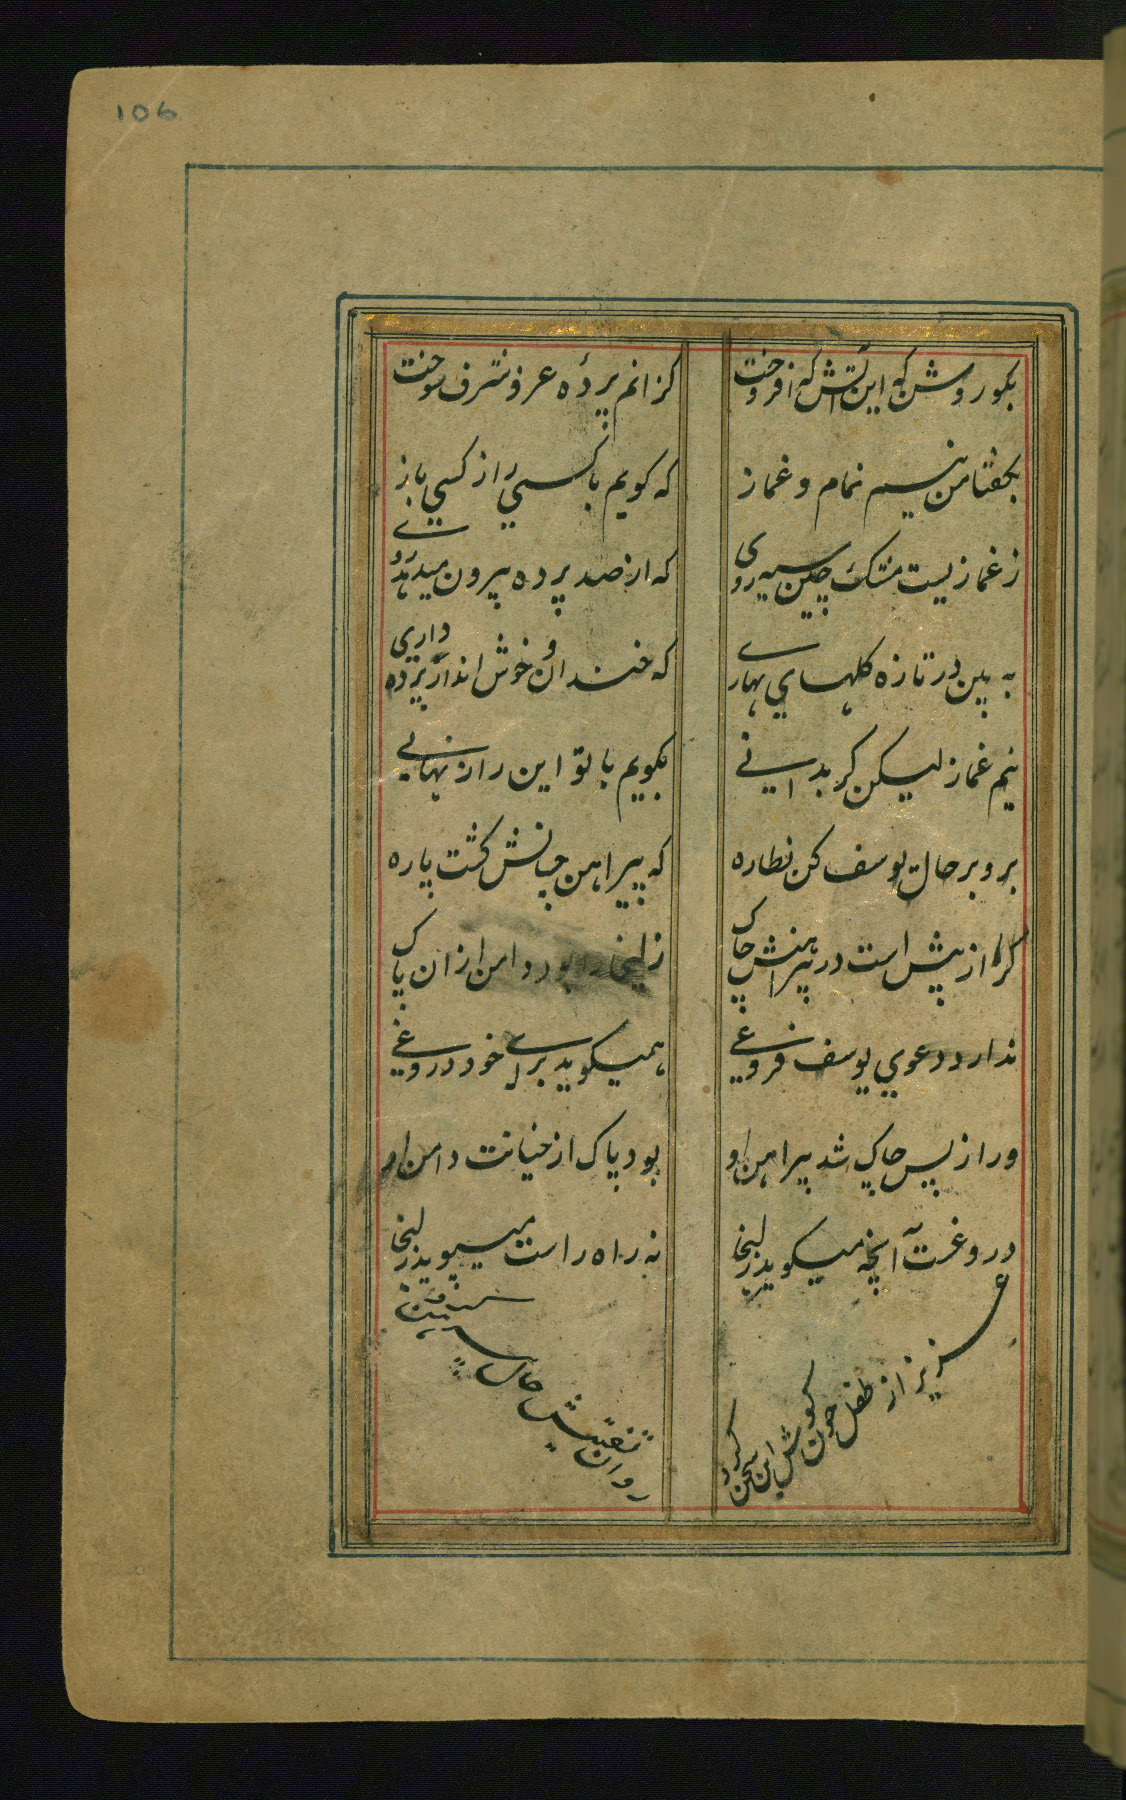 106
بکو روشن که این آتش که افروخت
کزانم پردهٔ عز و شرف سوخت
بگفتا من نیم نمام و غماز
که کویم با کسی راز کسی باز
ز غمازیست مشک چین سیه روی
که از صد پرده بیرون میدهد بوی
به بین در تازه کلهای بهاری
که خندان و خوش اند از پرده داری
نیم غماز لیکن کر بدانی
بکویم با تو این راز نهانی
برو بر حال یوسف کن نظاره
که پیراهن چسانش کشت پاره
کر از پیش است در پیراهنش چاک
زلیخا را بود دامن ازان پاک
ندارد دعوی یوسف فروغی
همیکوید برای خود دروغی
ور از پس چاک شد پیراهن او
بود پاک از خیانت دامن او
دروغست آنچه میکوید زلیخا
نه راه راست میپوید زلیخا
عزیز از طفل چون کوش این سخن کرد
روان تفتیش حال پیرهن کرد